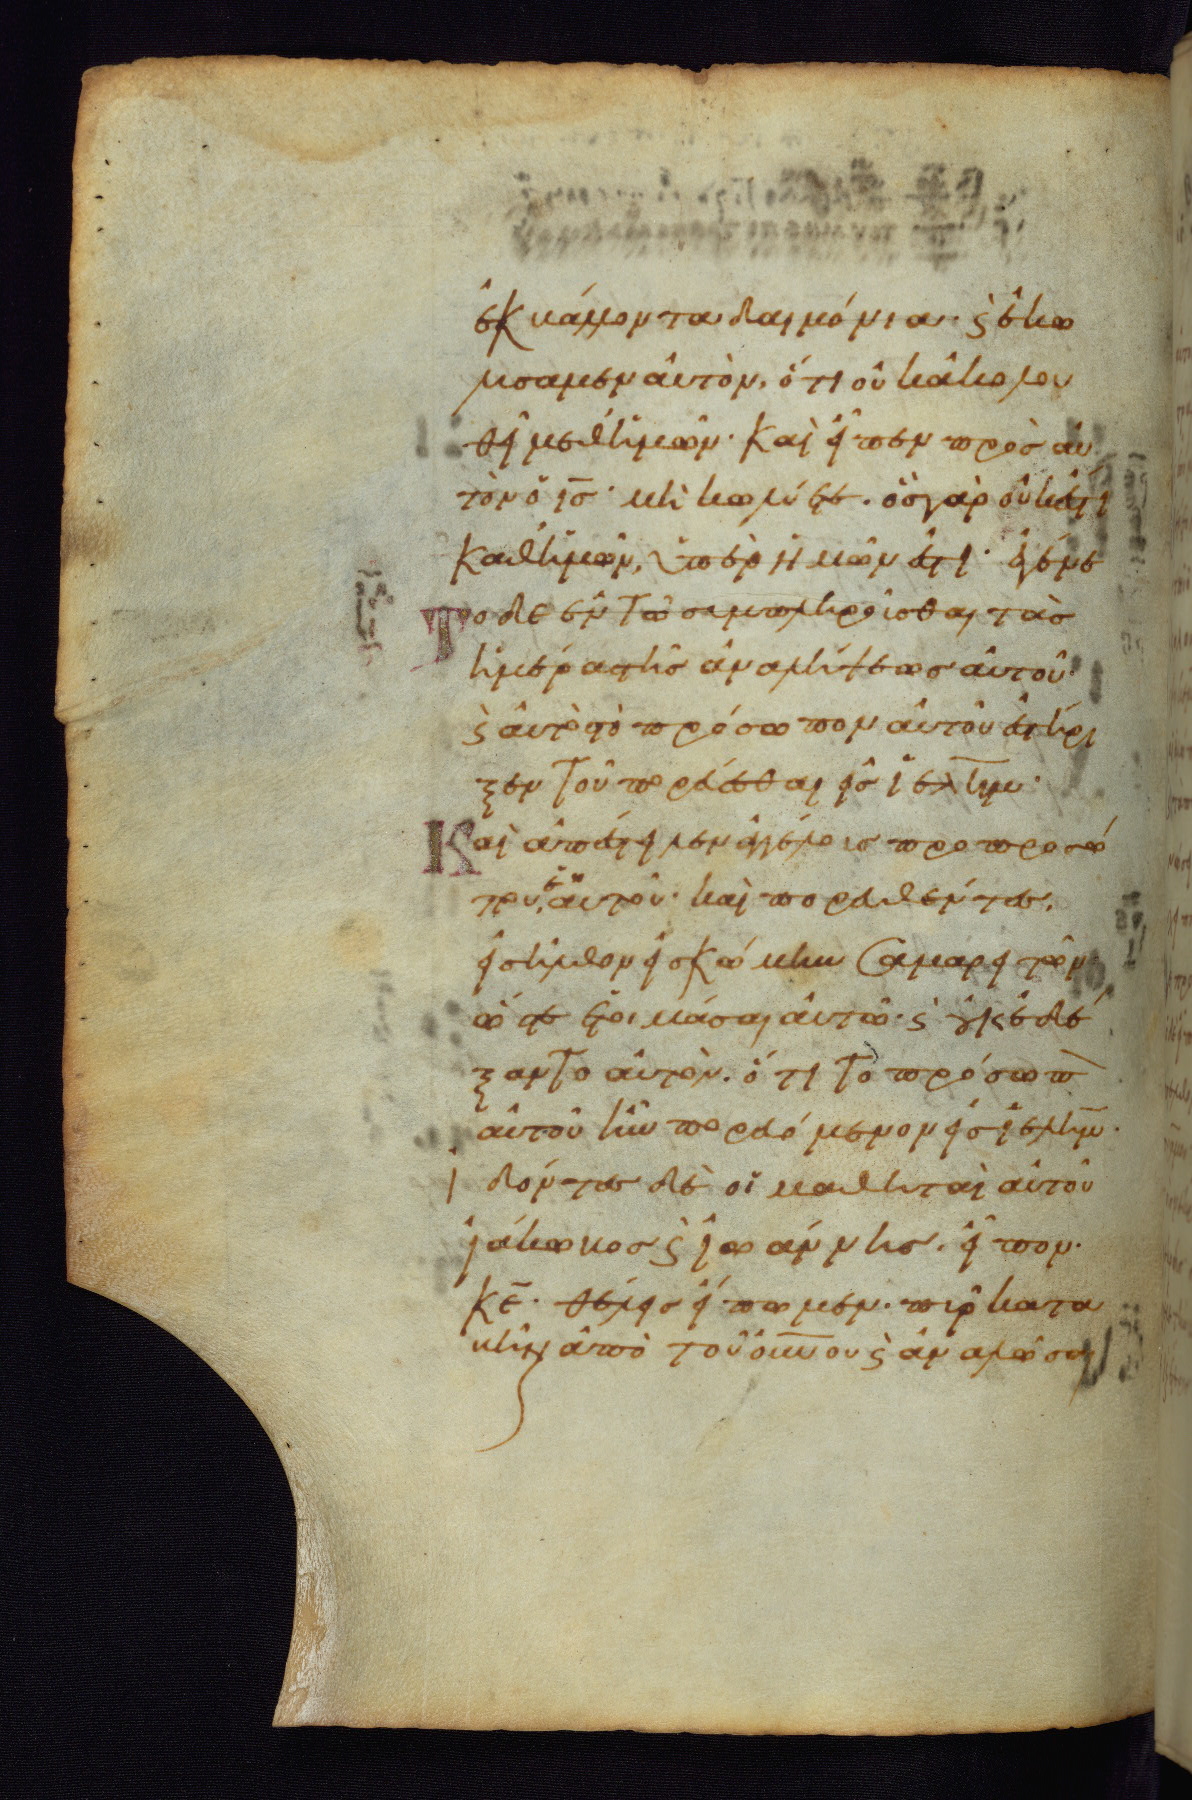 ἐκβάλλοντα δαιμόνια· ϛ ἐκω
λύσαμεν αὐτὸν, ὅτι οὐκ ἀκολου
θεῖ μεθ' ἡμῶν· Καὶ εἶπεν πρὸς αὐ
τὸν ὁ ι̅ς̅· μὴ κωλύετε· ὃς γὰρ οὐκ ἔστι
καθ' ἡμῶν, ὑπὲρ ἡμῶν ἐστι· ἐγένε
Το δὲ ἐν τῶ συμπληροῦσθαι τὰς
ἡμέρας τῆς ἀναλήψεως αὐτοῦ·
ϛ αὐτὸς τὸ πρόσωπον αὐτοῦ ἐστήρι
ξεν τοῦ πορεύεσθαι εἰς ι̅ε̅λ̅η̅μ̅·
Καὶ ἀπέστειλεν ἀγγέλους πρὸ προσώ
που ἑαυτοῦ· καὶ πορευθέντες,
εἰσῆλθον εἰς κώμην Σαμαρειτῶν·
ὥστε ἑτοιμάσαι αὐτῶ· ϛ οὐκ ἐδέ
ξαντο αὐτὸν· ὅτι τὸ πρόσωπ
αὐτοῦ ἦν πορευόμενον εἰς ι̅ε̅λ̅η̅μ̅·
ἰδόντες δὲ οἱ μαθηταὶ αὐτοῦ
ἰάκωβος ϛ ἰωάννης, εἶπον·
κ̅ε̅· θέλεις εἴπωμεν· πῦρ κατα
βῆναι ἀπὸ τοῦ ο̅υ̅ν̅ου ϛ ἀναλῶσαι